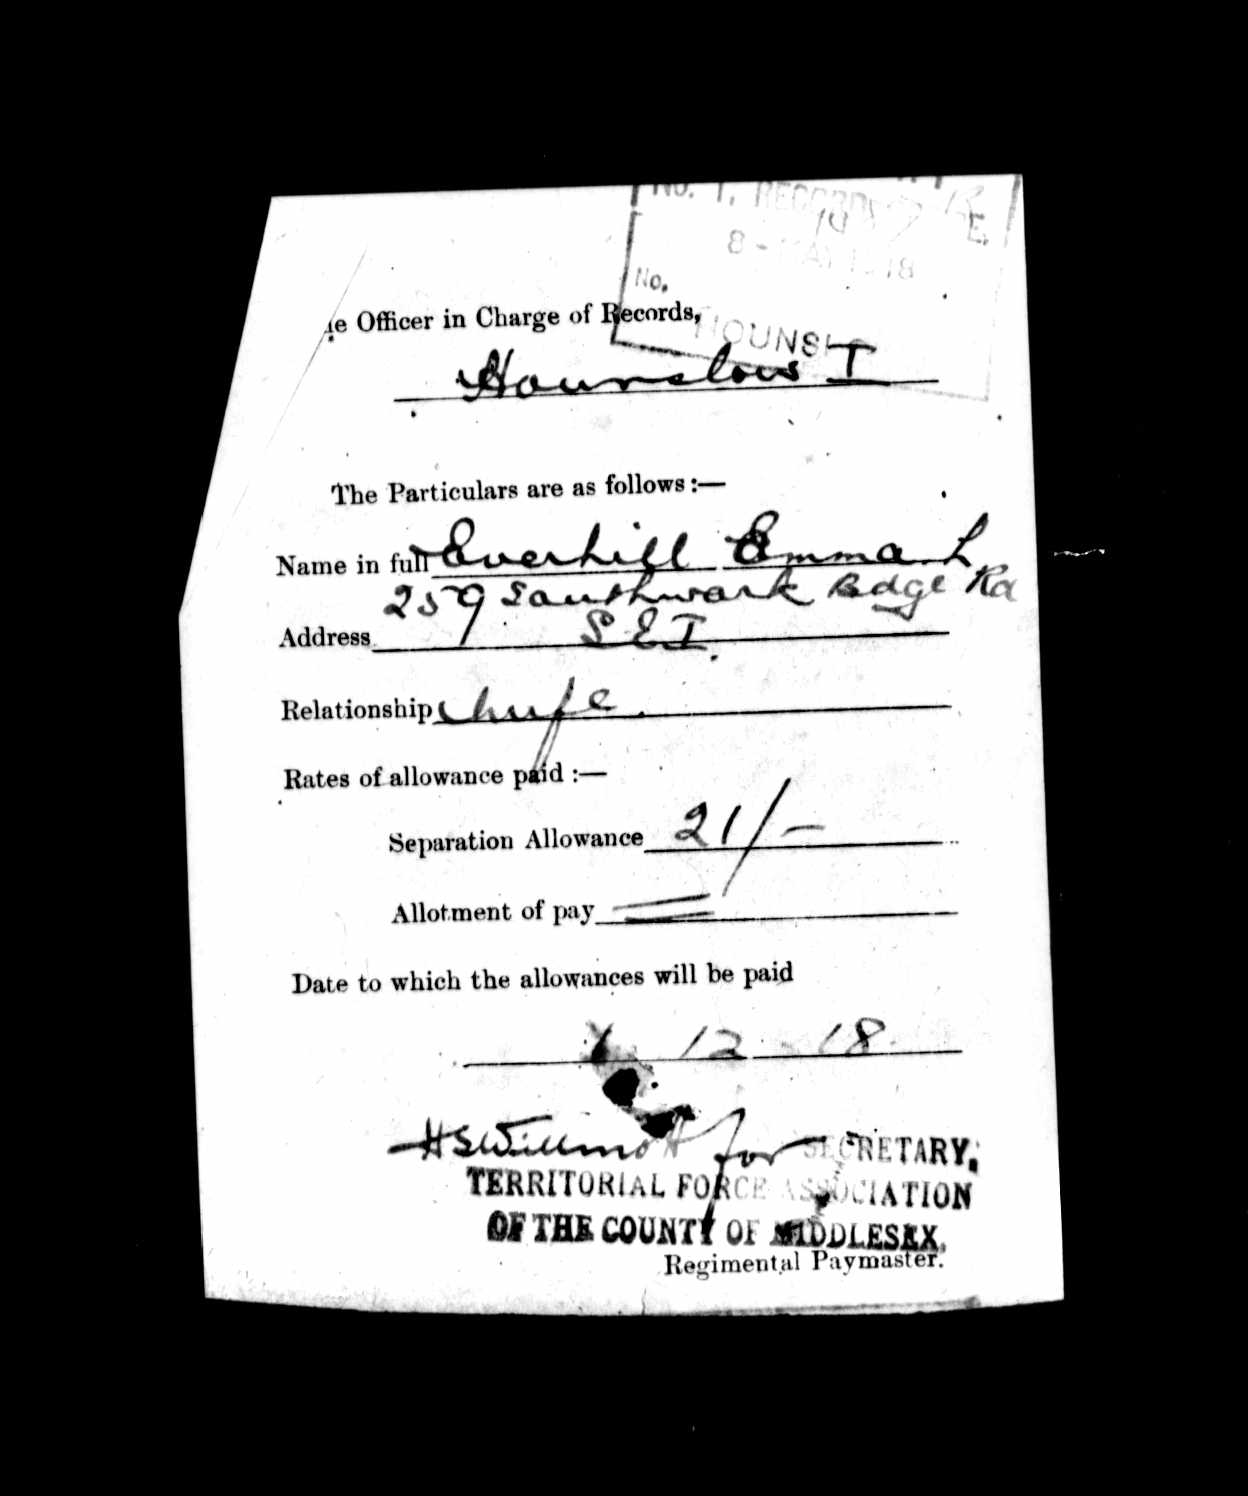 No. 1, RECORD
E.
8 - MAY 1918
No.
HOUNSL
e Officer in Charge of Records,
Hounslow I
The Particulars are as follows :—
Name in full Everhill Emma L
259 Southwark Bdge Rd
Address S E I.
Relationship Wife.
Rates of allowance paid :—
Separation Allowance 21/-
Allotment of pay
Date to which the allowances will be paid
12 18
HS Willmott for SECRETARY,
TERRITORIAL FORCE ASSOCIATION
OF THE COUNTY OF MIDDLESEX.
Regimental Paymaster.